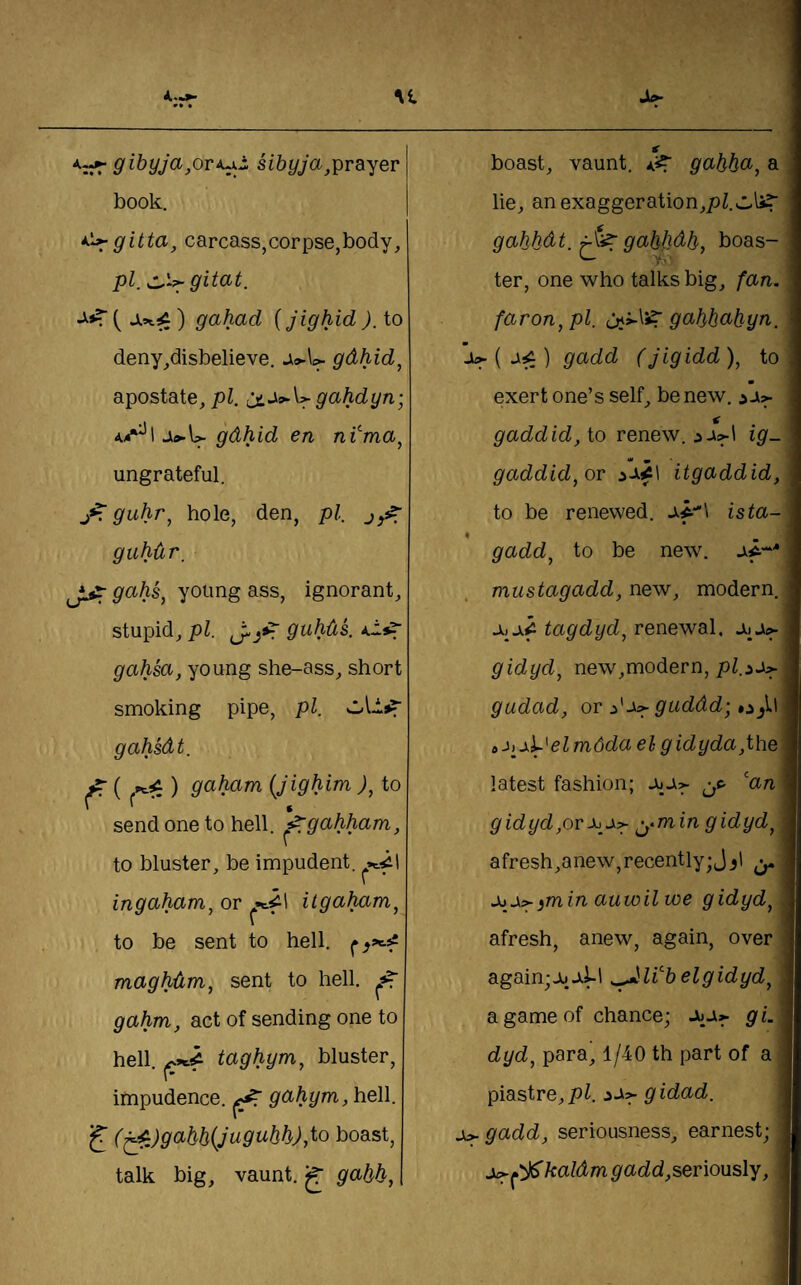 جبـ ٩٤ جد
جبيه gibyja,or شبيه śibyja,prayer
book.
جته gitta, carcass,corpse,body,
pl. جتت gitat.
جحد ( يجحد ) gaḥad (jighid). to
deny,disbelieve. جاحد gâḥid,
apostate, pl. جاحدين gaḥdyn;
جاحد النعمه gâḥid en niʿma,
ungrateful.
جحر guḥr, hole, den, pl. جحور
guḥûr.
جحش gaḥś, young ass, ignorant,
stupid, pl. جحوش guḥûś. جحشه
gaḥśa, young she-ass, short
smoking pipe, pl. جحشات
gaḥśât.
جحم ( يجحم ) gaḥam (jighim), to
send one to hell. جحّم gaḥḥam,
to bluster, be impudent. انجحم
ingaḥam, or اتجحم itgaḥam,
to be sent to hell. مجحوم
maghûm, sent to hell. جحم
gaḥm, act of sending one to
hell. تجحيم taghym, bluster,
impudence. جحيم gaḥym, hell.
جخ (يجخ) gaḫḫ(juguḫḫ),to boast,
talk big, vaunt. جخ gaḫḫ,
boast, vaunt. جخّه gaḫḫa, a
lie, an exaggeration,pl. جخات
gaḫḫât. جخّاخ gaḫḫâḫ, boas-
ter, one who talks big, fan.
faron, pl. جخاخين gaḫḫaḫyn.
جد ( يجد ) gadd (jigidd), to
exert one's self, be new. جدد
gaddid, to renew. اجدد ig-
gaddid, or اتجدد itgaddid,
to be renewed. استجد ista-
gadd, to be new. مستجد
mustagadd, new, modern.
تجديد tagdyd, renewal. جديد
gidyd, new,modern, pl. جدد
gudad, or جداد guddâd; الموده
الجديده el môda el gidyda,the
latest fashion; عن جديد ʿan
gidyd,or من جديد min gidyd,
afresh,anew,recently; من اول
وجديد min auwil we gidyd,
afresh, anew, again, over
again; لعب الجديد liʿb el gidyd,
a game of chance; جديد gi-
dyd, para, 1/40 th part of a
piastre, pl. جدد gidad.
جد gadd, seriousness, earnest;
كلام جد kalâm gadd,seriously,